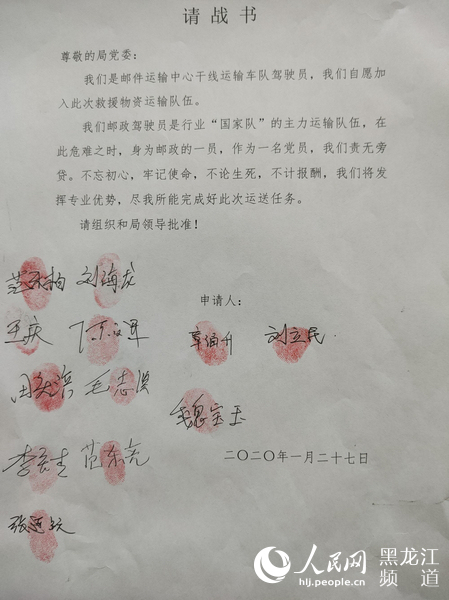 请战书
尊敬的局党委：
我们是邮件运输中心干线运输车队驾驶员，我们自愿
加入此次救援物资运输队伍。
我们邮政驾驶员是行业“国家队”的主力运输队伍，在
此危难之时，身为邮政的一员，作为一名党员，我们责无旁
贷。不忘初心，牢记使命，不论生死，不计报酬，我们将发
挥专业优势，尽我所能完成好此次运送任务。
请组织和局领导批准！
刘海龙
申请人：
王庆
刘立民
毛志滨
魏宝玉
范东亮
二〇二〇年一月二十七日
人民网 黑龙江
hlj.people.cn 频道